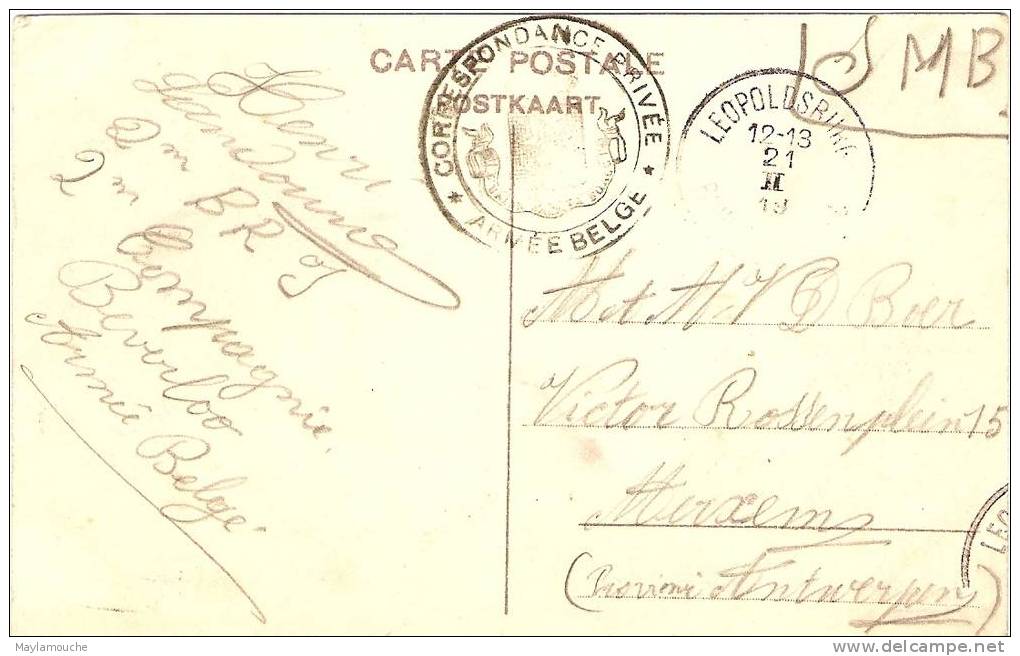 CARTE POSTALE
POSTKAART
CORRESPONDANCE PRIVÉE
ARMÉE BELGE
LEOPOLDSBURG
12-13
21
II
19
S MB
Henri
2m BR J
2m Compagnie
Beverloo
Armée Belge
M et M V D Boer
Victor Rossenplein 15
Merxem
(Provinci Antwerpen)
LEO
Maylamouche
delcampe.net